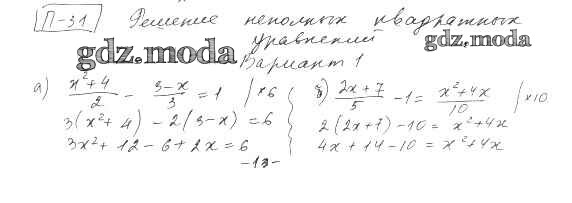 П-31 Решение неполных квадратных
уравнений
gdz.moda
gdz.moda
Вариант 1
а) (x²+4)/2 - (3-x)/3 = 1 | ×6
3(x²+4) - 2(3-x) = 6
3x² + 12 - 6 + 2x = 6
б) (2x+7)/5 - 1 = (x²+4x)/10 | ×10
2(2x+7) - 10 = x²+4x
4x + 14 - 10 = x²+4x
-13-